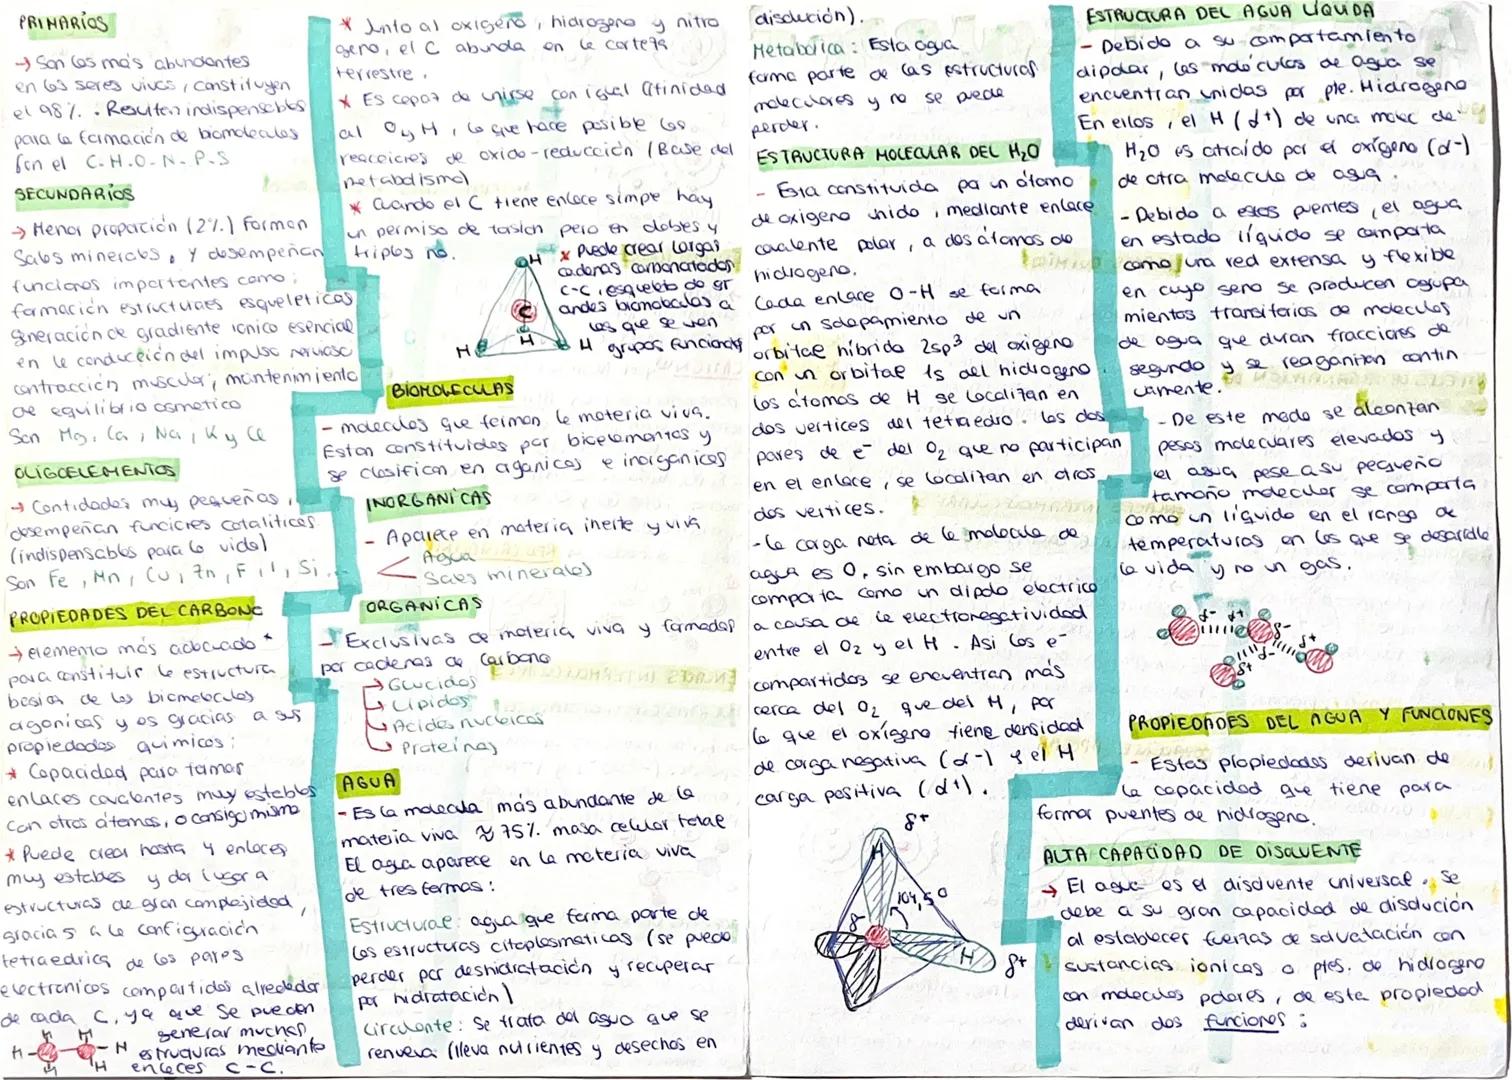 PRIMARIOS
→ Son los más abundantes
en los seres vivos, constituyen
el 98%. Resultan indispensables
para la formación de biomoléculas
Son el C-H-O-N-P-S
SECUNDARIOS
→ Menor proporción (2%) Forman
Sales minerales, y desempeñan
funciones importantes como:
formación estructuras esqueleticas
generación de gradiente ionico esencial
en la conducción del impulso nervioso
contracción muscular, mantenimiento
de equilibrio osmotico
Son Mg, Ca, Na, K y Cl
OLIGOELEMENTOS
→ Cantidades muy pequeñas,
desempeñan funciones cataliticas
(indispensables para la vida)
Son Fe, Mn, Cu, Zn, F, I, Si...
PROPIEDADES DEL CARBONO
→ elemento más adecuado
para constituir la estructura
basica de las biomoleculas
organicas y es gracias a sus
propiedades quimicas:
* Capacidad para formar
enlaces covalentes muy estables
con otros átomos, o consigo mismo
* Puede crear hasta 4 enlaces
muy estables y dar lugar a
estructuras de gran complejidad,
gracias a la configuración
tetraedrica de los pares
electronicos compartidos alrededor
de cada C, ya que se pueden
generar muchas
estructuras mediante
enlaces C-C.
H H
H- -H
H H
* Junto al oxigeno, hidrogeno y nitro
geno, el C abunda en la corteza
terrestre.
* Es capaz de unirse con igual afinidad
al O y H, lo que hace posible las
reacciones de oxido-reducción (Base del
metabolismo)
* Cuando el C tiene enlace simpe hay
un permiso de torsion pero en dobles y
triples no.
* Puede crear largas
cadenas carbonatadas
C-C, esqueleto de gr
andes biomoleculas a
las que se unen
grupos funcionales
H
C
H
H
H
BIOMOLECULAS
- moleculas que forman la materia viva.
Estan constituidas por bioelementos y
se clasifican en organicas e inorganicas
INORGANICAS
- Aparece en materia inerte y viva
Agua
Sales minerales
ORGANICAS
- Exclusivas de materia viva y formadas
por cadenas de Carbono
→ Glucidos
→ Lipidos
→ Acidos nucleicos
→ Proteinas
AGUA
- Es la molecula más abundante de la
materia viva ≈ 75% masa celular total
El agua aparece en la materia viva
de tres formas:
Estructural: agua que forma parte de
las estructuras citoplasmaticas (se puede
perder por deshidratación y recuperar
por hidratación)
Circulante: Se trata del agua que se
renueva (lleva nutrientes y desechos en
disolución).
Metabolica: Esta agua
forma parte de las estructuras
moleculares y no se puede
perder.
ESTRUCTURA MOLECULAR DEL H₂O
- Esta constituida por un átomo
de oxigeno unido, mediante enlace
covalente polar, a dos átomos de
hidrogeno.
Cada enlace O-H se forma
por un solapamiento de un
orbital híbrido 2sp³ del oxigeno
con un orbital 1s del hidrogeno.
Los átomos de H se localizan en
dos vertices del tetraedro. Los dos
pares de e⁻ del O₂ que no participan
en el enlace, se localizan en otros
dos vertices.
- La carga neta de la molecula de
agua es 0, sin embargo se
comporta como un dipolo electrico
a causa de la electronegatividad
entre el O₂ y el H. Asi los e⁻
compartidos se encuentran más
cerca del O₂ que del H, por
lo que el oxígeno tiene densidad
de carga negativa (δ-) y el H
carga positiva (δ+).
δ+
H
104,5°
δ-
H
δ+
ESTRUCTURA DEL AGUA LÍQUIDA
- Debido a su comportamiento
dipolar, las moléculas de agua se
encuentran unidas por pte. Hidrogeno
En ellos, el H (δ+) de una molec de
H₂O es atraido por el oxígeno (δ-)
de otra molecula de agua.
- Debido a estos puentes, el agua
en estado líquido se comporta
como una red extensa y flexible
en cuyo seno se producen agrupa
mientos transitorios de moleculas
de agua que duran fracciones de
segundo y se reaganizan contin
uamente.
- De este modo se alcanzan
pesos moleculares elevados y
el agua pese a su pequeño
tamaño molecular se comporta
como un líquido en el rango de
temperaturas en las que se desarolle
la vida y no un gas.
δ- δ+
δ-
δ+
δ-
δ+
PROPIEDADES DEL AGUA Y FUNCIONES
- Estas propiedades derivan de
la capacidad que tiene para
formar puentes de hidrogeno.
ALTA CAPACIDAD DE DISOLVENTE
→ El agua es el disolvente universal. Se
debe a su gran capacidad de disolución
al establecer fuerzas de solvatación con
sustancias ionicas o ptes. de hidrogeno
con moleculas polares, de esta propiedad
derivan dos funciones: